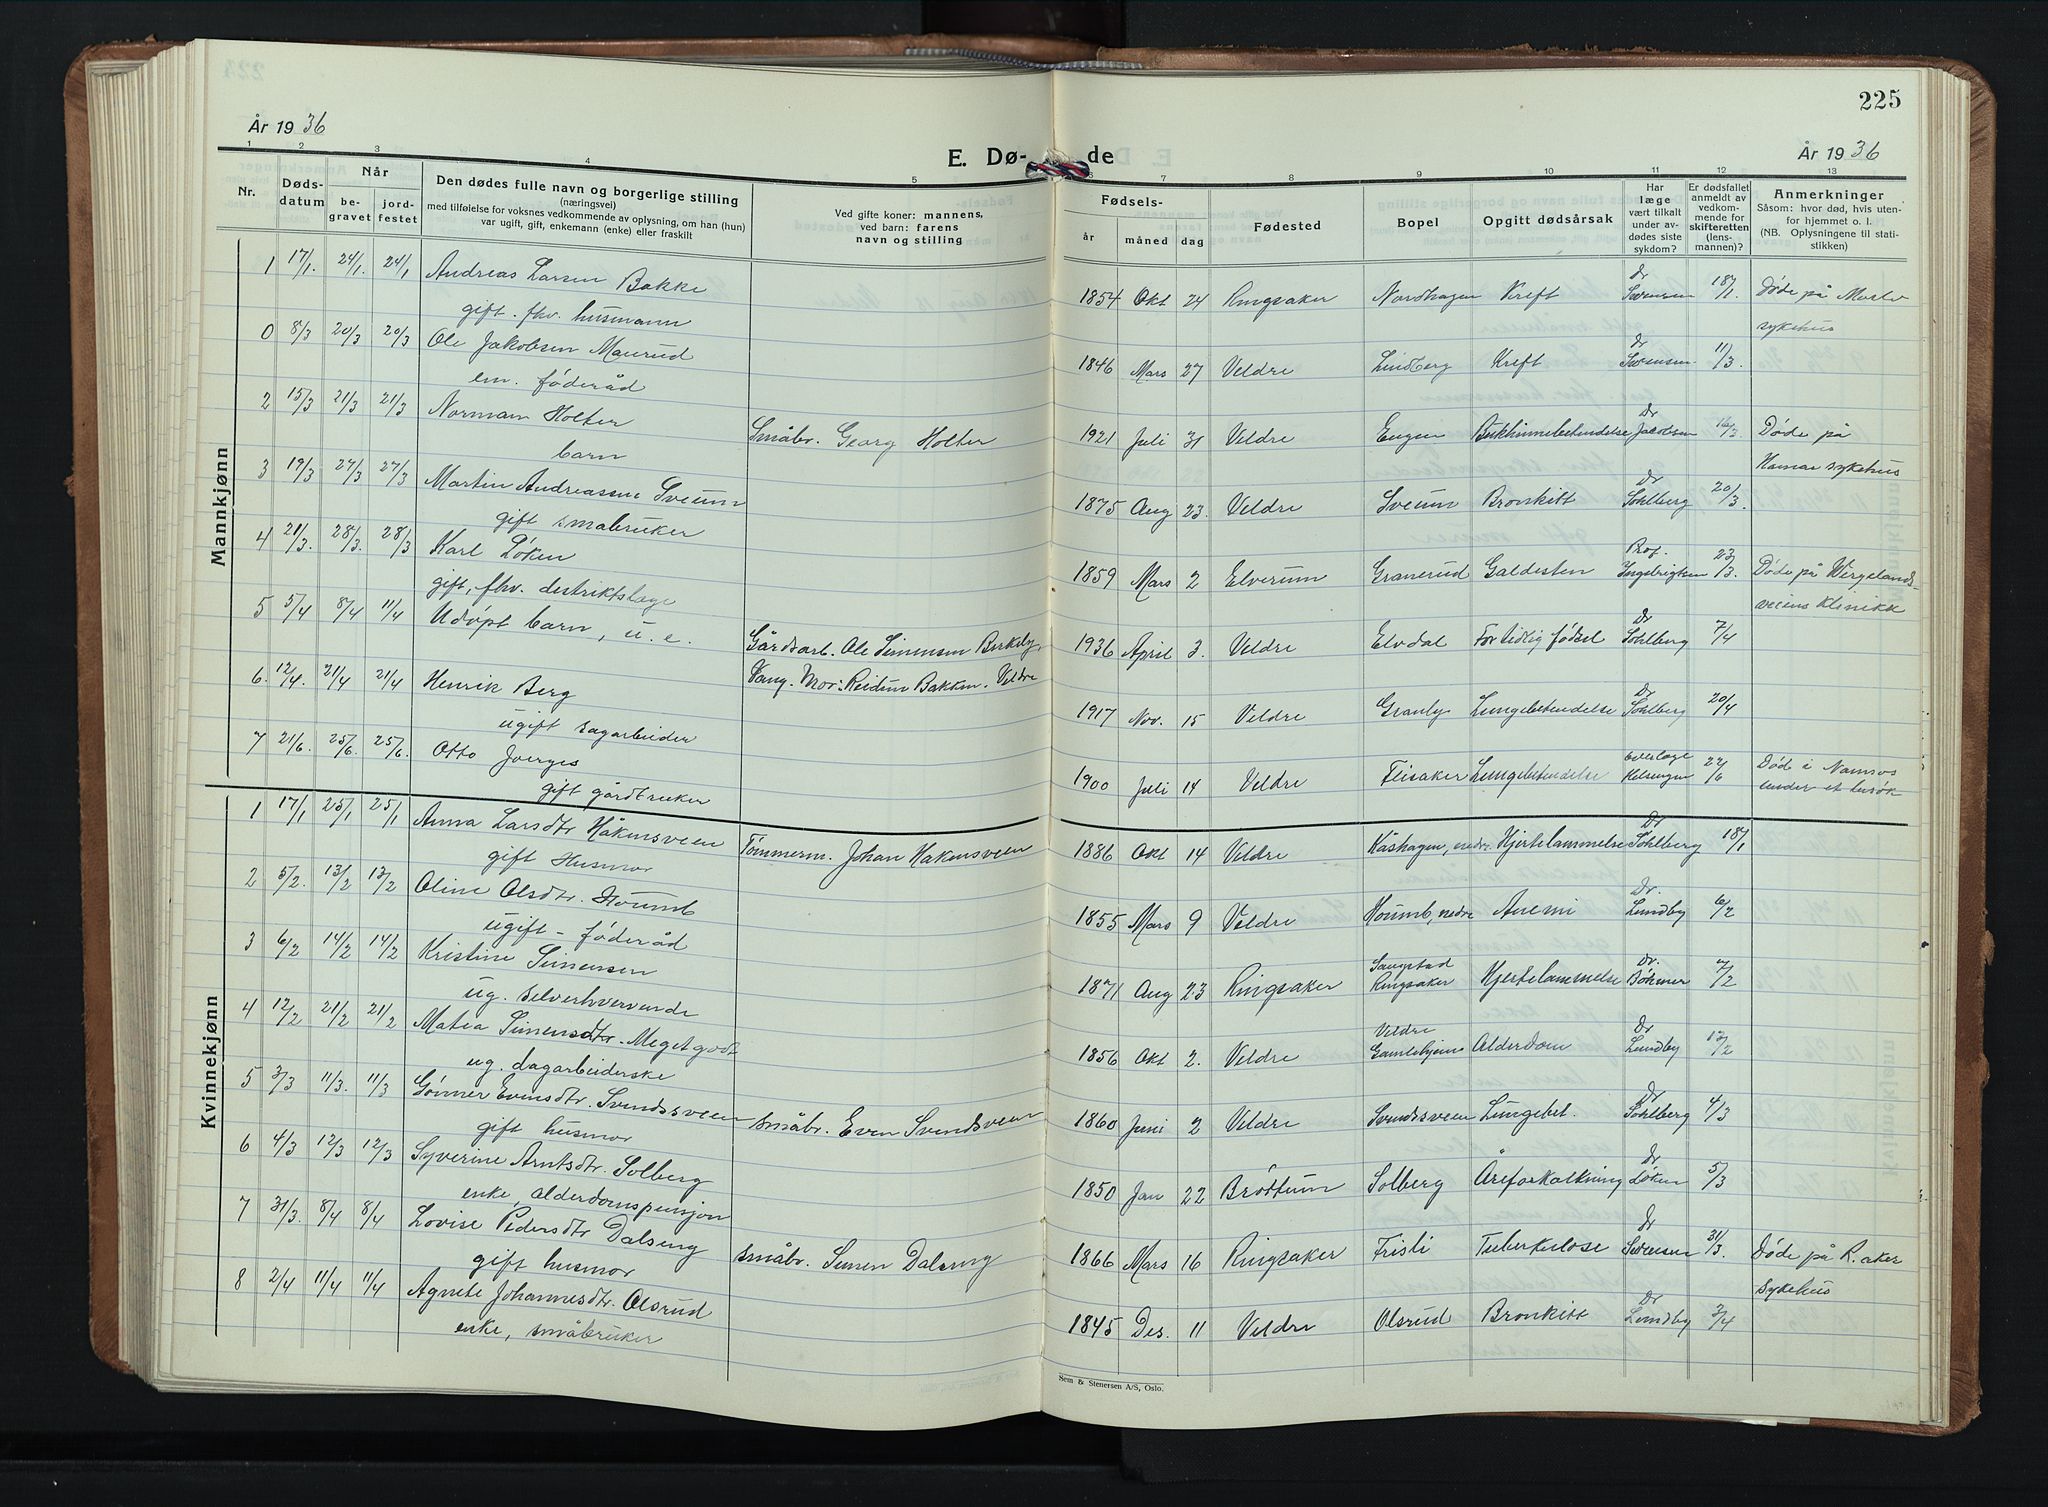 225
År 1936
E. Dø- de
År 1936
1 2 3 4 5 6 7 8 9 10 11 12 13
Nr.
Døds-
datum
Når
be-
gravet
jord-
festet
Den dødes fulle navn og borgerlige stilling
(næringsvei)
med tilføielse for voksnes vedkommende av oplysning, om han (hun)
var ugift, gift, enkemann (enke) eller fraskilt
Ved gifte koner: mannens,
ved barn: farens
navn og stilling
Fødsels-
år måned dag
Fødested
Bopel
Opgitt dødsårsak
Har
læge
vært tilkalt
under av-
dødes siste
sykdom?
Er dødsfallet
anmeldt av
vedkom-
mende for
skifteretten
(lens-
mannen)?
Anmerkninger
Såsom: hvor død, hvis uten-
for hjemmet o. l.
(NB. Oplysningene til stati-
stikken)
Mannkjønn
1 17/1. 24/1. 24/1 Andreas Larsen Bakke
gift. fhv. husmann
1854 Okt 24 Ringsaker Nordhagen Kreft Dr Sørensen 18/1. Døde på Moelv
sykehus
0 8/3 20/3 20/3 Ole Jakobsen Maurud
em. føderåd
1846 Mars 27 Veldre Lindberg Kreft Dr Sørensen 11/3.
2 15/3 21/3 21/3 Norman Holter
barn
Småbr. Georg Holter
1921 Juli 31 Veldre Engen Bukhinnebetendelse Dr Jacobsen 16/3. Døde på
Hamar sykehus
3 19/3 27/3 27/3 Martin Andreassen Sveum
gift småbruker
1875 Aug 23. Veldre Sveum Bronkitt Dr Sohlberg 20/3.
4 21/3. 28/3. 28/3 Karl Løken
gift, fhv. distriktslæge
1859 Mars 2 Elverum Granerud Galdesten Prof. Ingebrigtsen 23/3. Døde på Wergelands-
veiens Klinikk
5 5/4 8/4 11/4 Udøpt barn, u. e.
Gårdsarb. Ole Simensen Birkeby,
Vang. Mor: Reidun Bakken. Veldre
1936 April 3. Veldre Elvdal For tidlig fødsel Dr Sohlberg 7/4
6. 12/4. 21/4 21/4 Henrik Berg
ugift sagarbeider
1917 Nov. 15 Veldre Granly Lungebetendelse Dr Sohlberg 20/4
7 21/6. 25/6. 25/6. Otto Joerges
gift gårdbruker
1900 Juli 14 Veldre Fleisaker Lungebetendelse Overlæge Helsingen 22/6 Død i Namsos
under et besøk
Kvinnekjønn
1 17/1 25/1 25/1 Anna Larsdtr Håkensveen
gift Husmor
Tømmerm. Johan Håkensveen
1886 Okt 14 Veldre Kåshagen, nedre Hjertelammelse Dr Sohlberg 18/1
2 5/2. 13/2 13/2 Oline Olsdtr. Houmb
ugift - føderåd
1855 Mars 9 Veldre Houmb, nedre Anemi Dr. Lundby 6/2
3 6/2 14/2 14/2 Kristine Simensen
ug. selverhvervende
1871 Aug 23 Ringsaker Ringsaker Hjertelammelse Dr. Bøhmer 7/2
4 12/2 21/2 21/2 Matea Simensdtr. Megetgodt
ug. dagarbeiderske
1856 Okt 2. Veldre Veldre
Gamlehjem Alderdom Dr Lundby 13/2
5 3/3 11/3. 11/3 Gønner Evensdtr. Svendsveen
gift husmor
småbr. Even Svendsveen
1860 Juni 2 Veldre Svendsveen Lungebet. Dr Sohlberg 4/3
6 4/3 12/3 12/3 Syverine Arntsdtr. Solberg
enke, alderdomspensjon
1850 Jan 22 Brøttum Solberg Åreforkalkning Dr Løken 5/3
7 31/3. 8/4 8/4 Lovise Pedersdtr Dalseng
gift husmor
småbr. Simen Dalseng
1866 Mars 16 Ringsaker Frisli Tuberkulose Dr Sørensen 31/3. Døde på R.aker
sykehus
8 2/4 11/4 11/4 Agnete Johannesdtr. Olsrud
enke, småbruker
1845 Des. 11 Veldre Olsrud Bronkitt Dr Lundby 3/4
Sem & Stenersen A/S, Oslo.